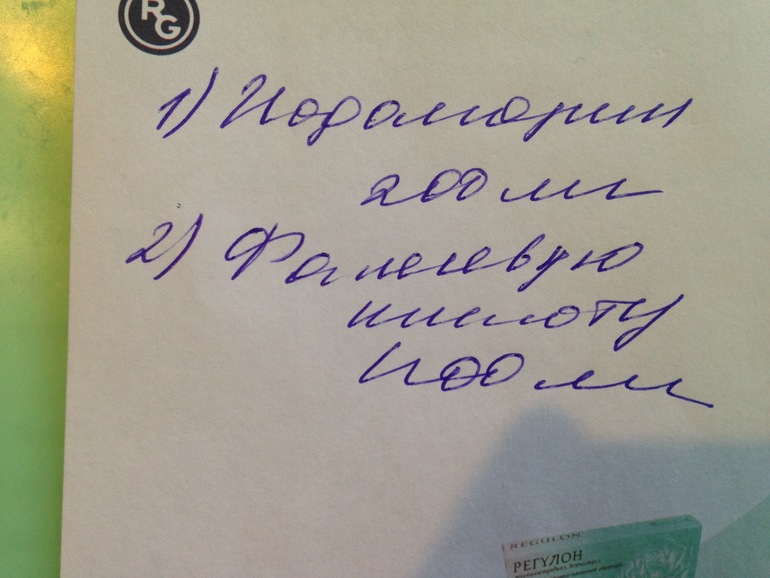 RG
1) Йодомарин
200 мг
2) Фолиевую
кислоту
400 мг
REGULON
РЕГУЛОН